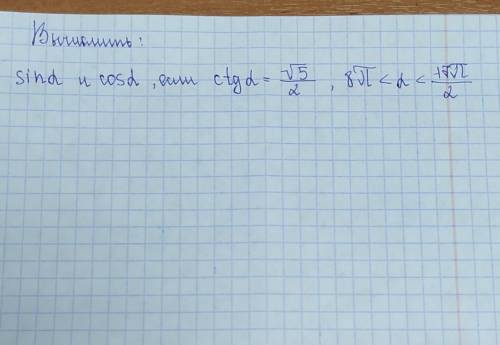 Вычислить:
sinα и cosα, если ctgα = √5/2, 8π < α < 17π/2